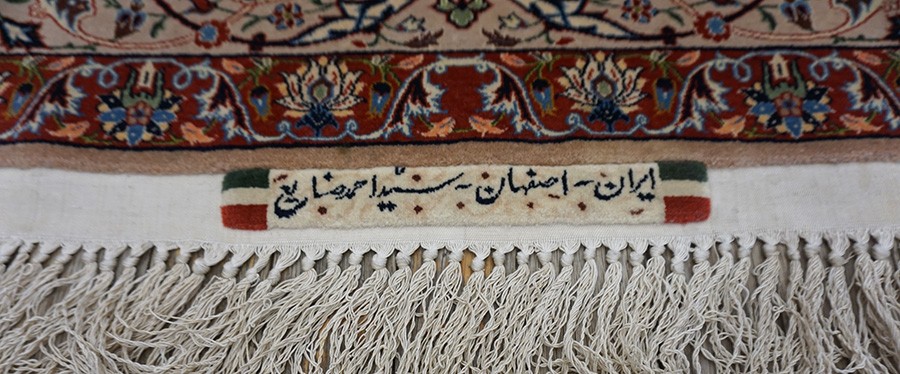 ایران - اصفهان - سید احمد صنایع